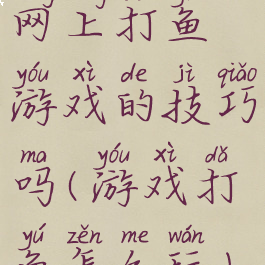 网上打鱼
yóu xì de jì qiǎo
游戏的技巧
ma yóu xì dǎ
吗(游戏打
yú zěn me wán